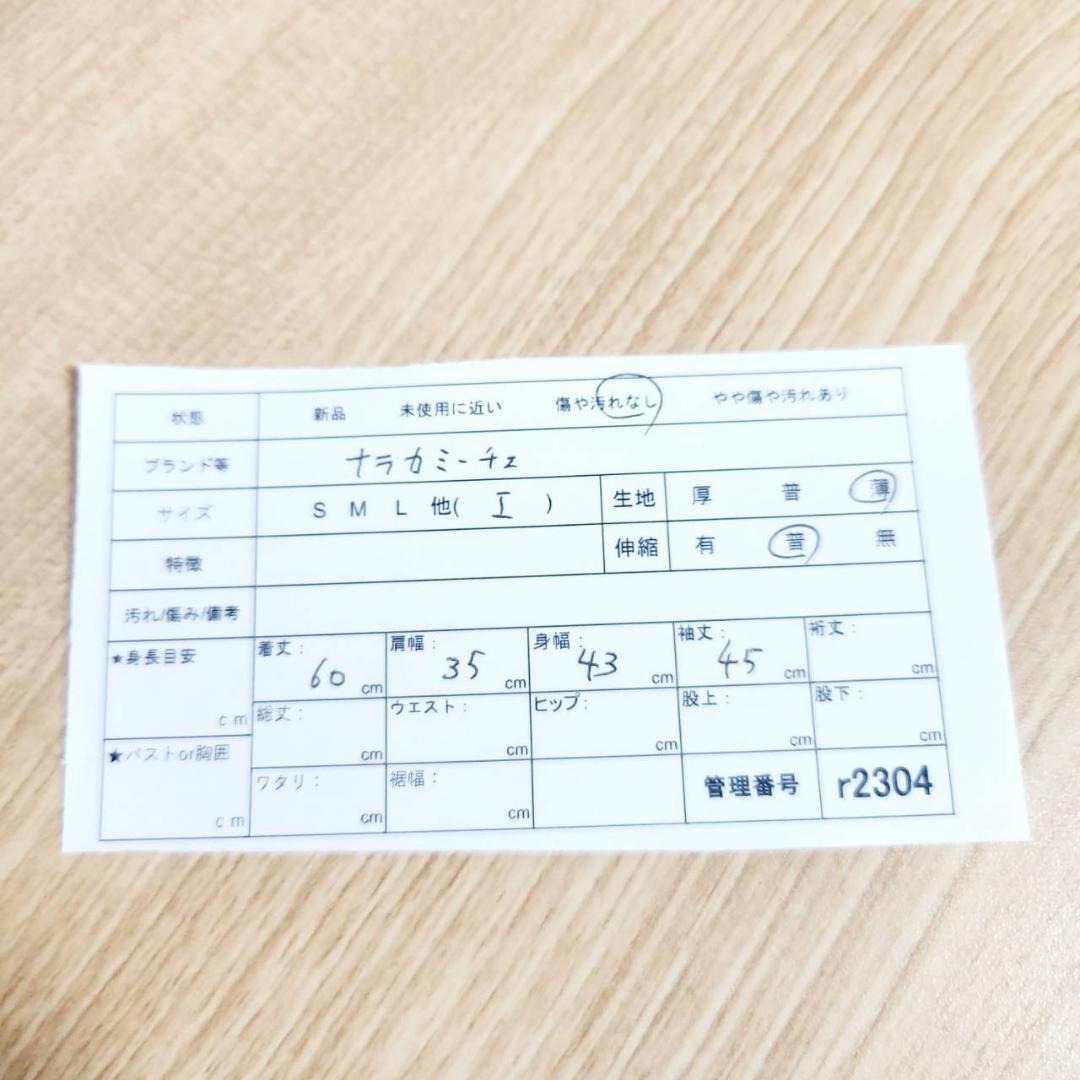 状態 新品 未使用に近い 傷や汚れなし やや傷や汚れあり
ブランド等 ナラカミーチェ
サイズ S M L 他( I ) 生地 厚 普 薄
特徴 伸縮 有 普 無
汚れ/傷み/備考
★身長目安 cm 着丈: 60 cm 肩幅: 35 cm 身幅: 43 cm 袖丈: 45 cm 裄丈: cm
総丈: cm ウエスト: cm ヒップ: cm 股上: cm 股下: cm
★バストor胸囲 cm ワタリ: cm 裾幅: cm 管理番号 r2304